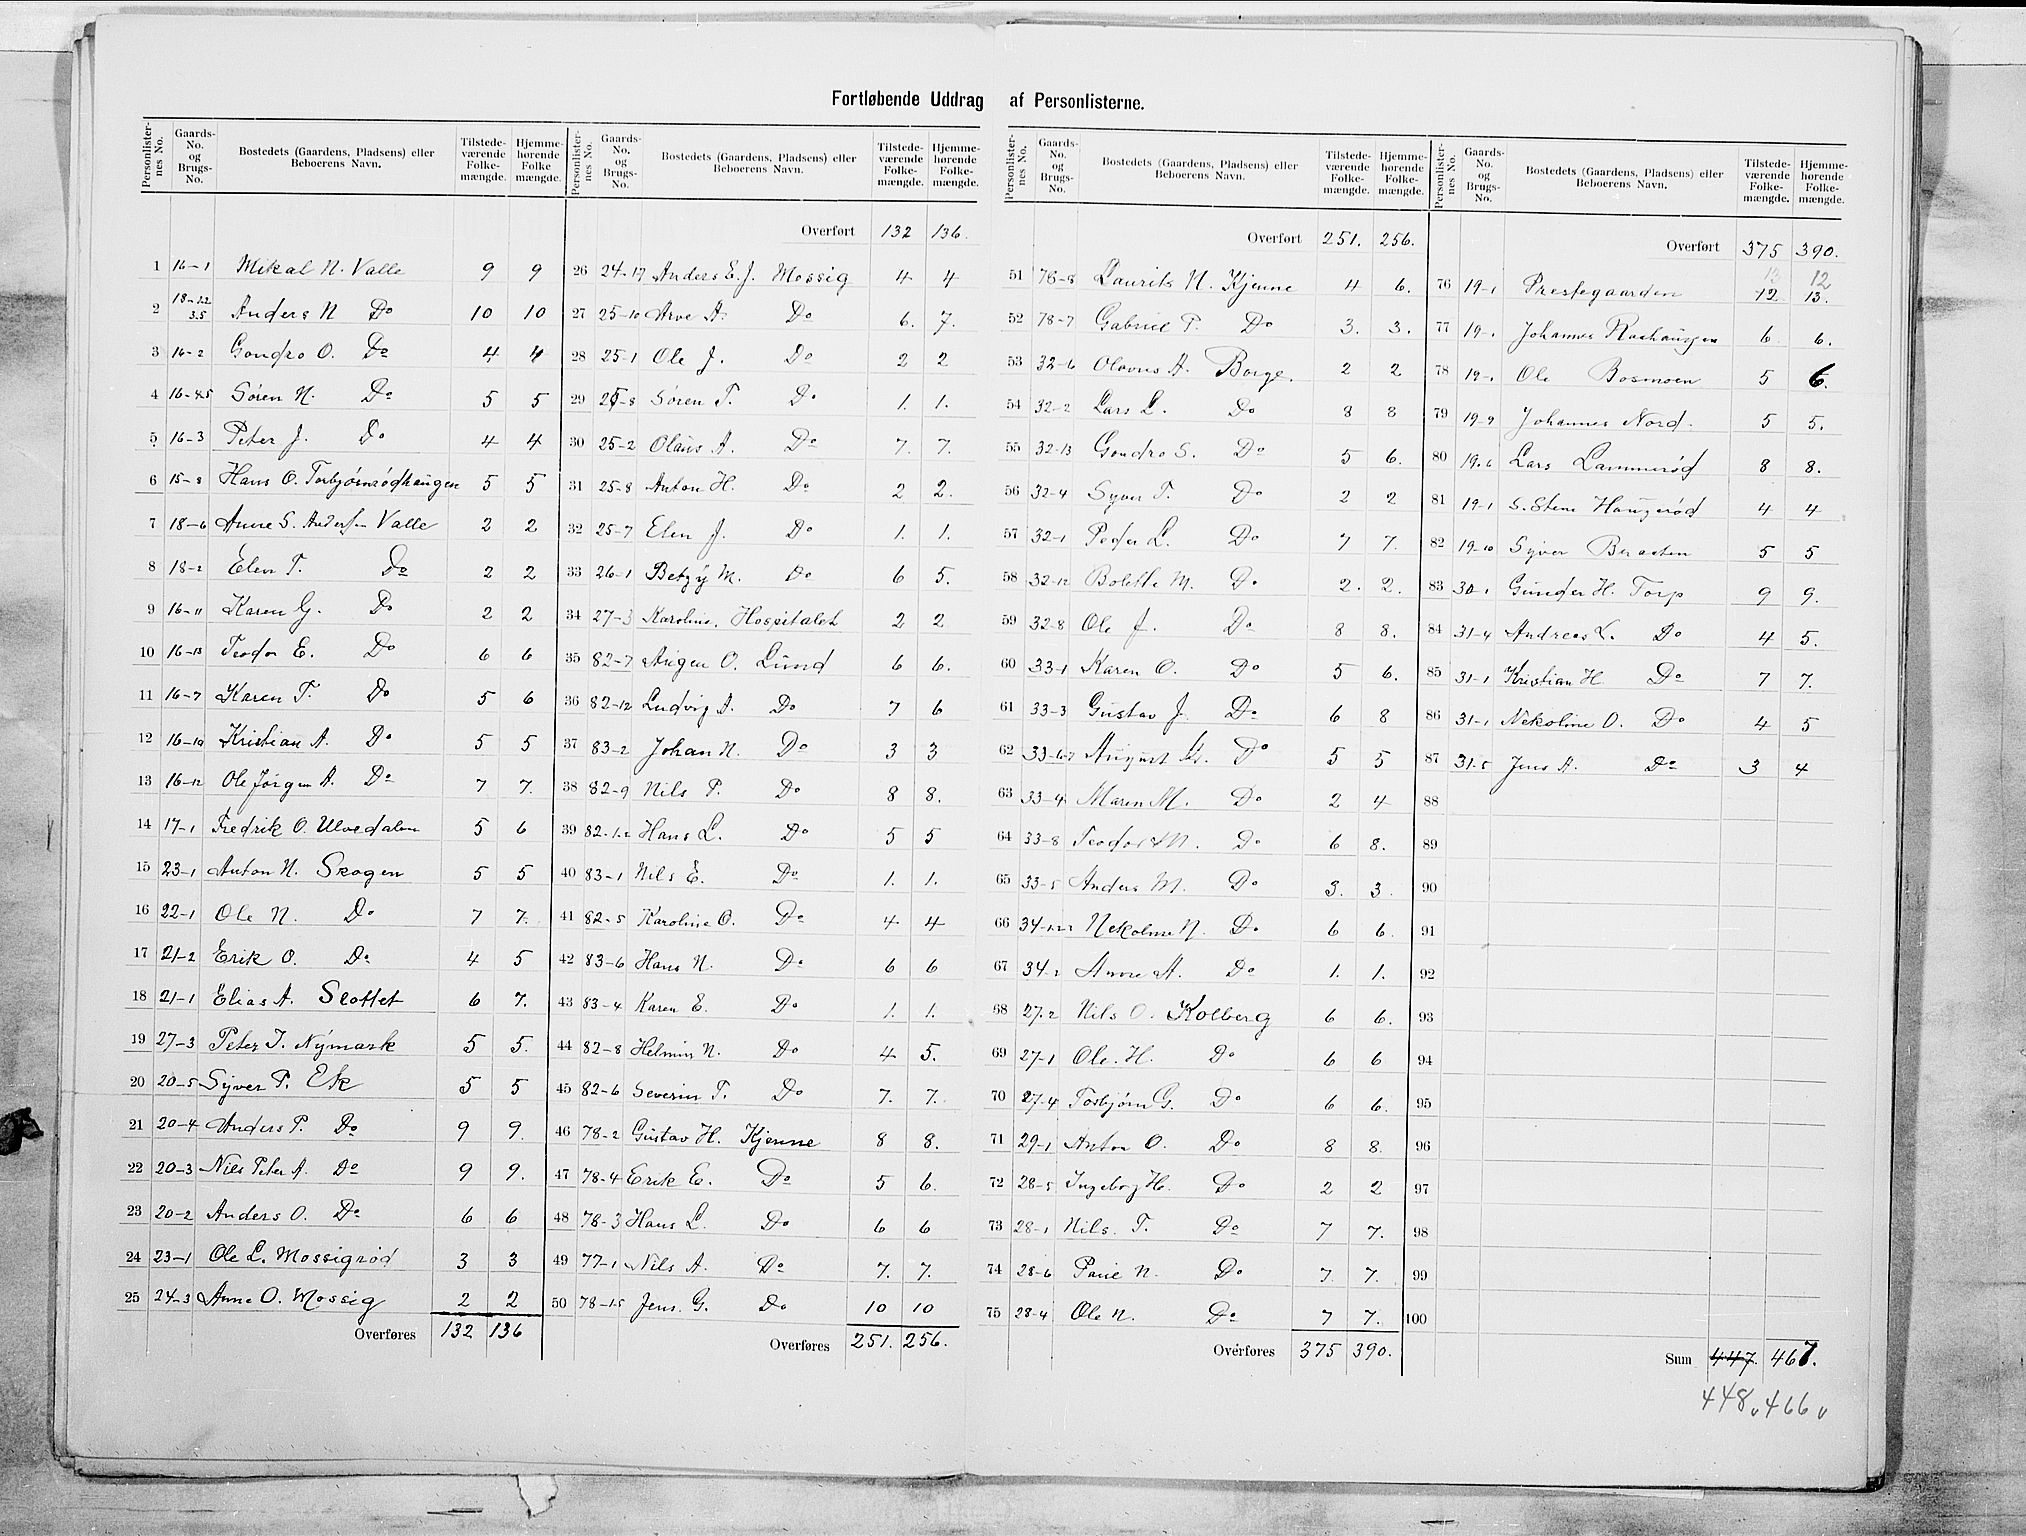 Fortløbende Uddrag af Personlisterne.
Personlister-nes No. Gaards-No. og Brugs-No. Bostedets (Gaardens, Pladsens) eller Beboerens Navn. Tilstede-værende Folke-mængde. Hjemme-hørende Folke-mængde.
1 16-1 Mikal N. Valle 9 9
2 18-1.2 3.5 Anders N Do 10 10
3 16-2 Gondro O. Do 4 4
4 16-4.5 Søren N. Do 5 5
5 16-3 Peter J. Do 4 4
6 15-8 Hans O. Torbjørnrødhaugen 5 5
7 18-6 Anne S. Andersen Valle 2 2
8 18-2 Elen T. Do 2 2
9 16-11 Karen G. Do 2 2
10 16-13 Teodor E. Do 6 6
11 16-7 Karen T. Do 5 6
12 16-10 Kristian A. Do 5 5
13 16-12 Ole Jørgen A. Do 7 7.
14 17-1 Fredrik O. Ulvedalen 5 6
15 23-1 Anton N. Skogen 5 5
16 22-1 Ole N. Do 7 7.
17 21-2 Erik O. Do 4 5
18 21-1 Elias A. Slottet 6 7.
19 27-3 Peter J. Nymark 5 5.
20 20-5 Syver P. Ek 5 5
21 20-4 Anders P. Do 9 9.
22 20-3 Nils Peter A. Do 9 9.
23 20-2 Anders O. Do 6 6
24 23-1 Ole L. Mossigrød 3 3
25 24-3 Anne O. Mossig 2 2
Overføres 132 136
Personlister-nes No. Gaards-No. og Brugs-No. Bostedets (Gaardens, Pladsens) eller Beboerens Navn. Tilstede-værende Folke-mængde. Hjemme-hørende Folke-mængde.
Overført 132 136.
26 24-17 Anders E. J. Mossig 4 4
27 25-10 Arve A. Do 6. 7.
28 25-1 Ole J. Do 2 2
29 25-8 Søren T. Do 1. 1.
30 25-2 Olaus A. Do 7. 7.
31 25-8 Anton H. Do 2 2.
32 25-7 Elen J. Do 1. 1.
33 26-1 Betzy M. Do 6 5.
34 27-3 Karoline. Hospitalet 2 2
35 82-7 Augen O. Lund 6 6.
36 82-12 Ludvig A. Do 7 6
37 83-2 Johan N. Do 3 3
38 82-9 Nils P. Do 8 8.
39 82-1.2 Hans L. Do 5 5
40 83-1 Nils E. Do 1. 1.
41 82-5 Karoline O. Do 4 4
42 83-6 Hans N. Do 6 6
43 83-4 Karen E. Do 1. 1.
44 82-8 Helmin N. Do 4 5.
45 82-6 Severin T. Do 7. 7.
46 78-2 Gustav H. Kjenne 8 8.
47 78-4 Erik E. Do 5 6.
48 78-3 Hans L. Do 6 6
49 77-1 Nils A. Do 7. 7.
50 78-1.5 Jens. G. Do 10 10
Overføres 251. 256.
Personlister-nes No. Gaards-No. og Brugs-No. Bostedets (Gaardens, Pladsens) eller Beboerens Navn. Tilstede-værende Folke-mængde. Hjemme-hørende Folke-mængde.
Overført 251. 256.
51 78-8 Laurits N. Kjenne 4 6.
52 78-7 Gabriel P. Do 3. 3.
53 32-6 Olavus A. Borge. 2 2
54 32-2 Lars L. Do 8 8
55 32-13 Gondro S. Do 5 6.
56 32-4 Syver T. Do 2 2
57 32-1 Peder L. Do 7 7.
58 32-12 Bolette M. Do 2. 2.
59 32-8 Ole J. Do 8 8.
60 33-1 Karen O. Do 5 6.
61 33-3 Gustav J. Do 6 8
62 33-6.7 August Do 5 5
63 33-4 Maren M. Do 2 4
64 33-8 Teodor N. Do 6 8.
65 33-5 Anders M. Do 3. 3.
66 34-1 Nekoline N. Do 6 6.
67 34-2 Anne A. Do 1. 1.
68 27.2 Nils O. Kolberg 6 6.
69 27-1 Ole. H. Do 6 6
70 27-4 Torbjørn G. Do 6 6.
71 29-1 Anton O. Do 8 8.
72 28-5 Ingeborg H. Do 2 2
73 28-1 Nils. T. Do 7 7.
74 28-6 Paul N. Do 7 7.
75 28-4 Ole N. Do 7 7.
Overføres 375 390.
Personlister-nes No. Gaards-No. og Brugs-No. Bostedets (Gaardens, Pladsens) eller Beboerens Navn. Tilstede-værende Folke-mængde. Hjemme-hørende Folke-mængde.
Overført 375 390.
13 12
76 19-1 Prestegaarden 12 13.
77 19-1 Johannes 6 6.
78 19-1 Ole Bosmoen 5 6.
79 19-9 Johannes Nord. 5 5.
80 19.6 Lars Lammerød 8 8.
81 19-1 S. Stene Haugerød 4 4
82 19-10 Syver Braaten 5 5
83 30-1 Gunder H. Torp 9 9.
84 31-4 Andreas L. Do 4 5.
85 31-1 Kristian H. Do 7 7.
86 31-1 Nekoline O. Do 4 5
87 31-5 Jens A. Do 3 4
88
89
90
91
92
93
94
95
96
97
98
99
100
Sum 447. 467.
448 466